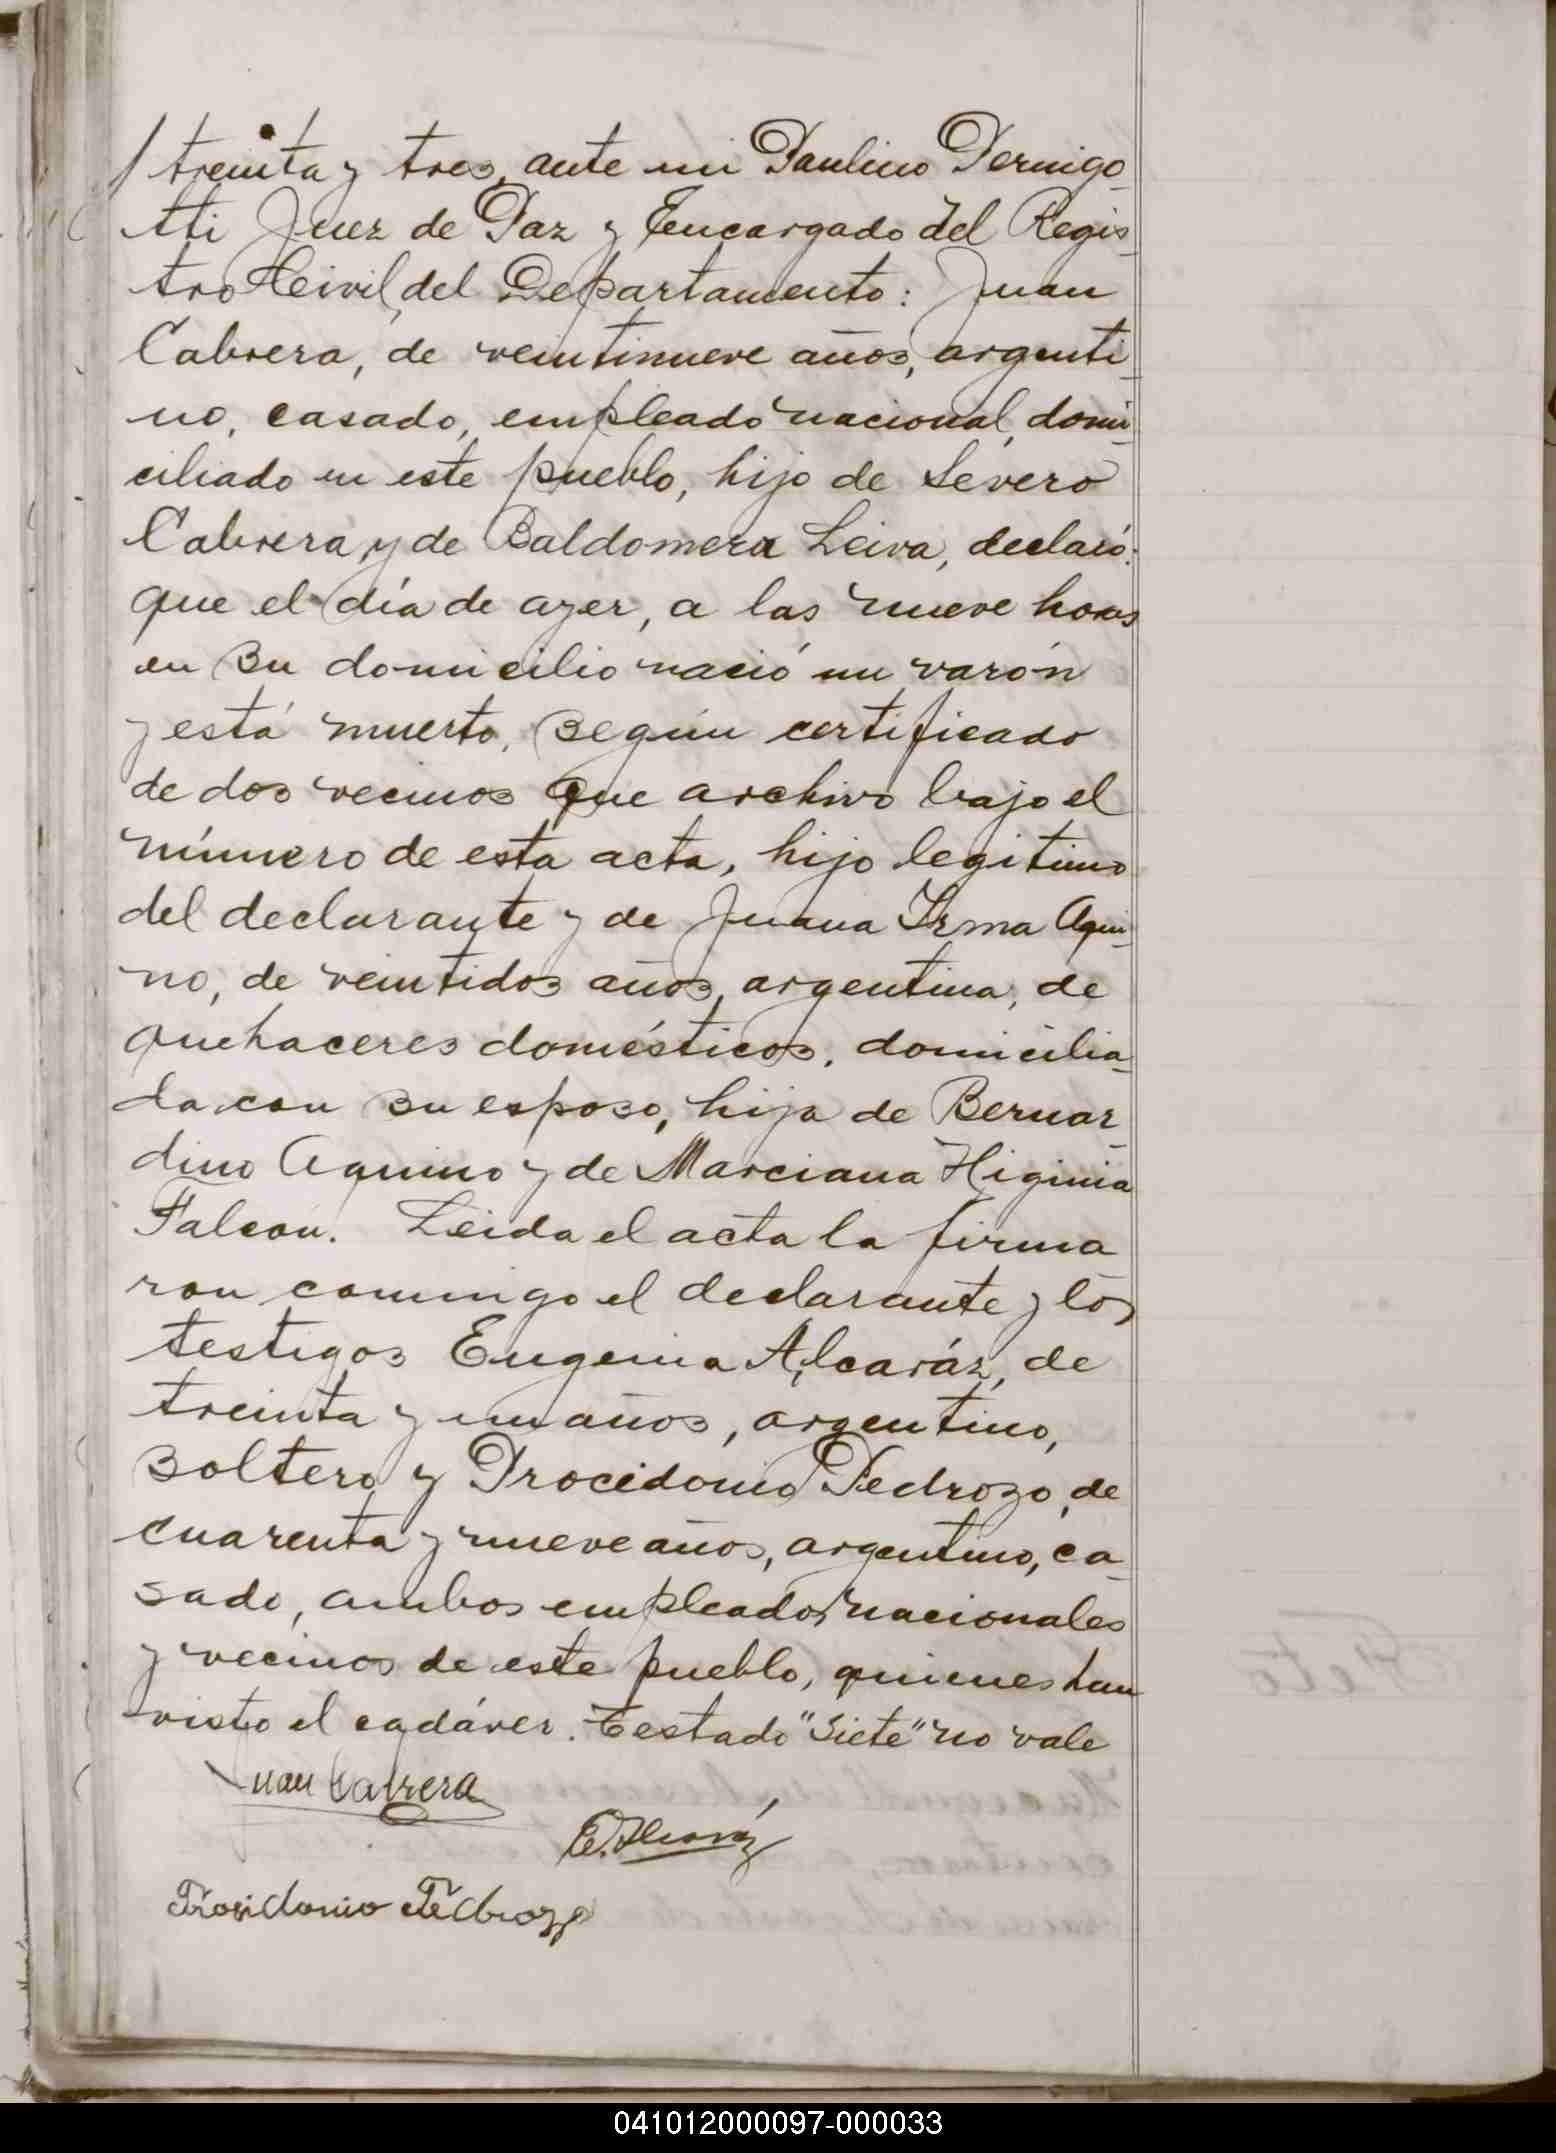 treinta y tres, ante mi Paulino Pernigo-
tti Juez de Paz y Encargado del Regis-
tro Civil, del Departamento: Juan
Cabrera, de veintinueve años, argenti-
no, casado, empleado nacional, domi-
ciliado en este pueblo, hijo de Severo
Cabrera y de Baldomera Leiva, declaró:
que el día de ayer, a las nueve horas
en su domicilio nació un varón
y está muerto, según certificado
de dos vecinos que archivo bajo el
número de esta acta, hijo legitimo
del declarante y de Juana Irma Aqui-
no, de veintidos años, argentina, de
quehaceres domésticos, domicilia-
da con su esposo, hija de Bernar-
dino Aquino y de Marciana Higinia
Falcon. Leida el acta la firma-
ron conmigo el declarante y los
testigos Eugenia Alcaráz, de
treinta y un años, argentino,
soltero y Procidonio Pedrozo, de
cuarenta y nueve años, argentino, ca-
sado, ambos empleados nacionales
y vecinos de este pueblo, quienes han
visto el cadáver. Testado "siete" no vale
Juan Cabrera
Prosidonio Pedrozo
041012000097-000033